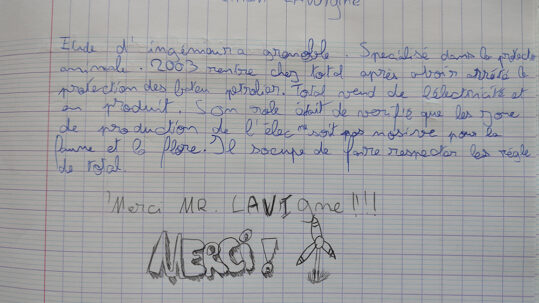 Lavigne
Etude d'ingénieur a grenoble. Specialisé dans la protectio
animale. 2003 rentre chez total après avoir arrété la
protection des petrolier. Total vend de l'électricité et
en produit. Son role était de verifié que les zone
de production de l'élec soit pas nosive pour la
faune et la flore. Il s'ocupe de faire respecter les régle
de total.
Merci MR. LAVIgne !!!!
MERCI!